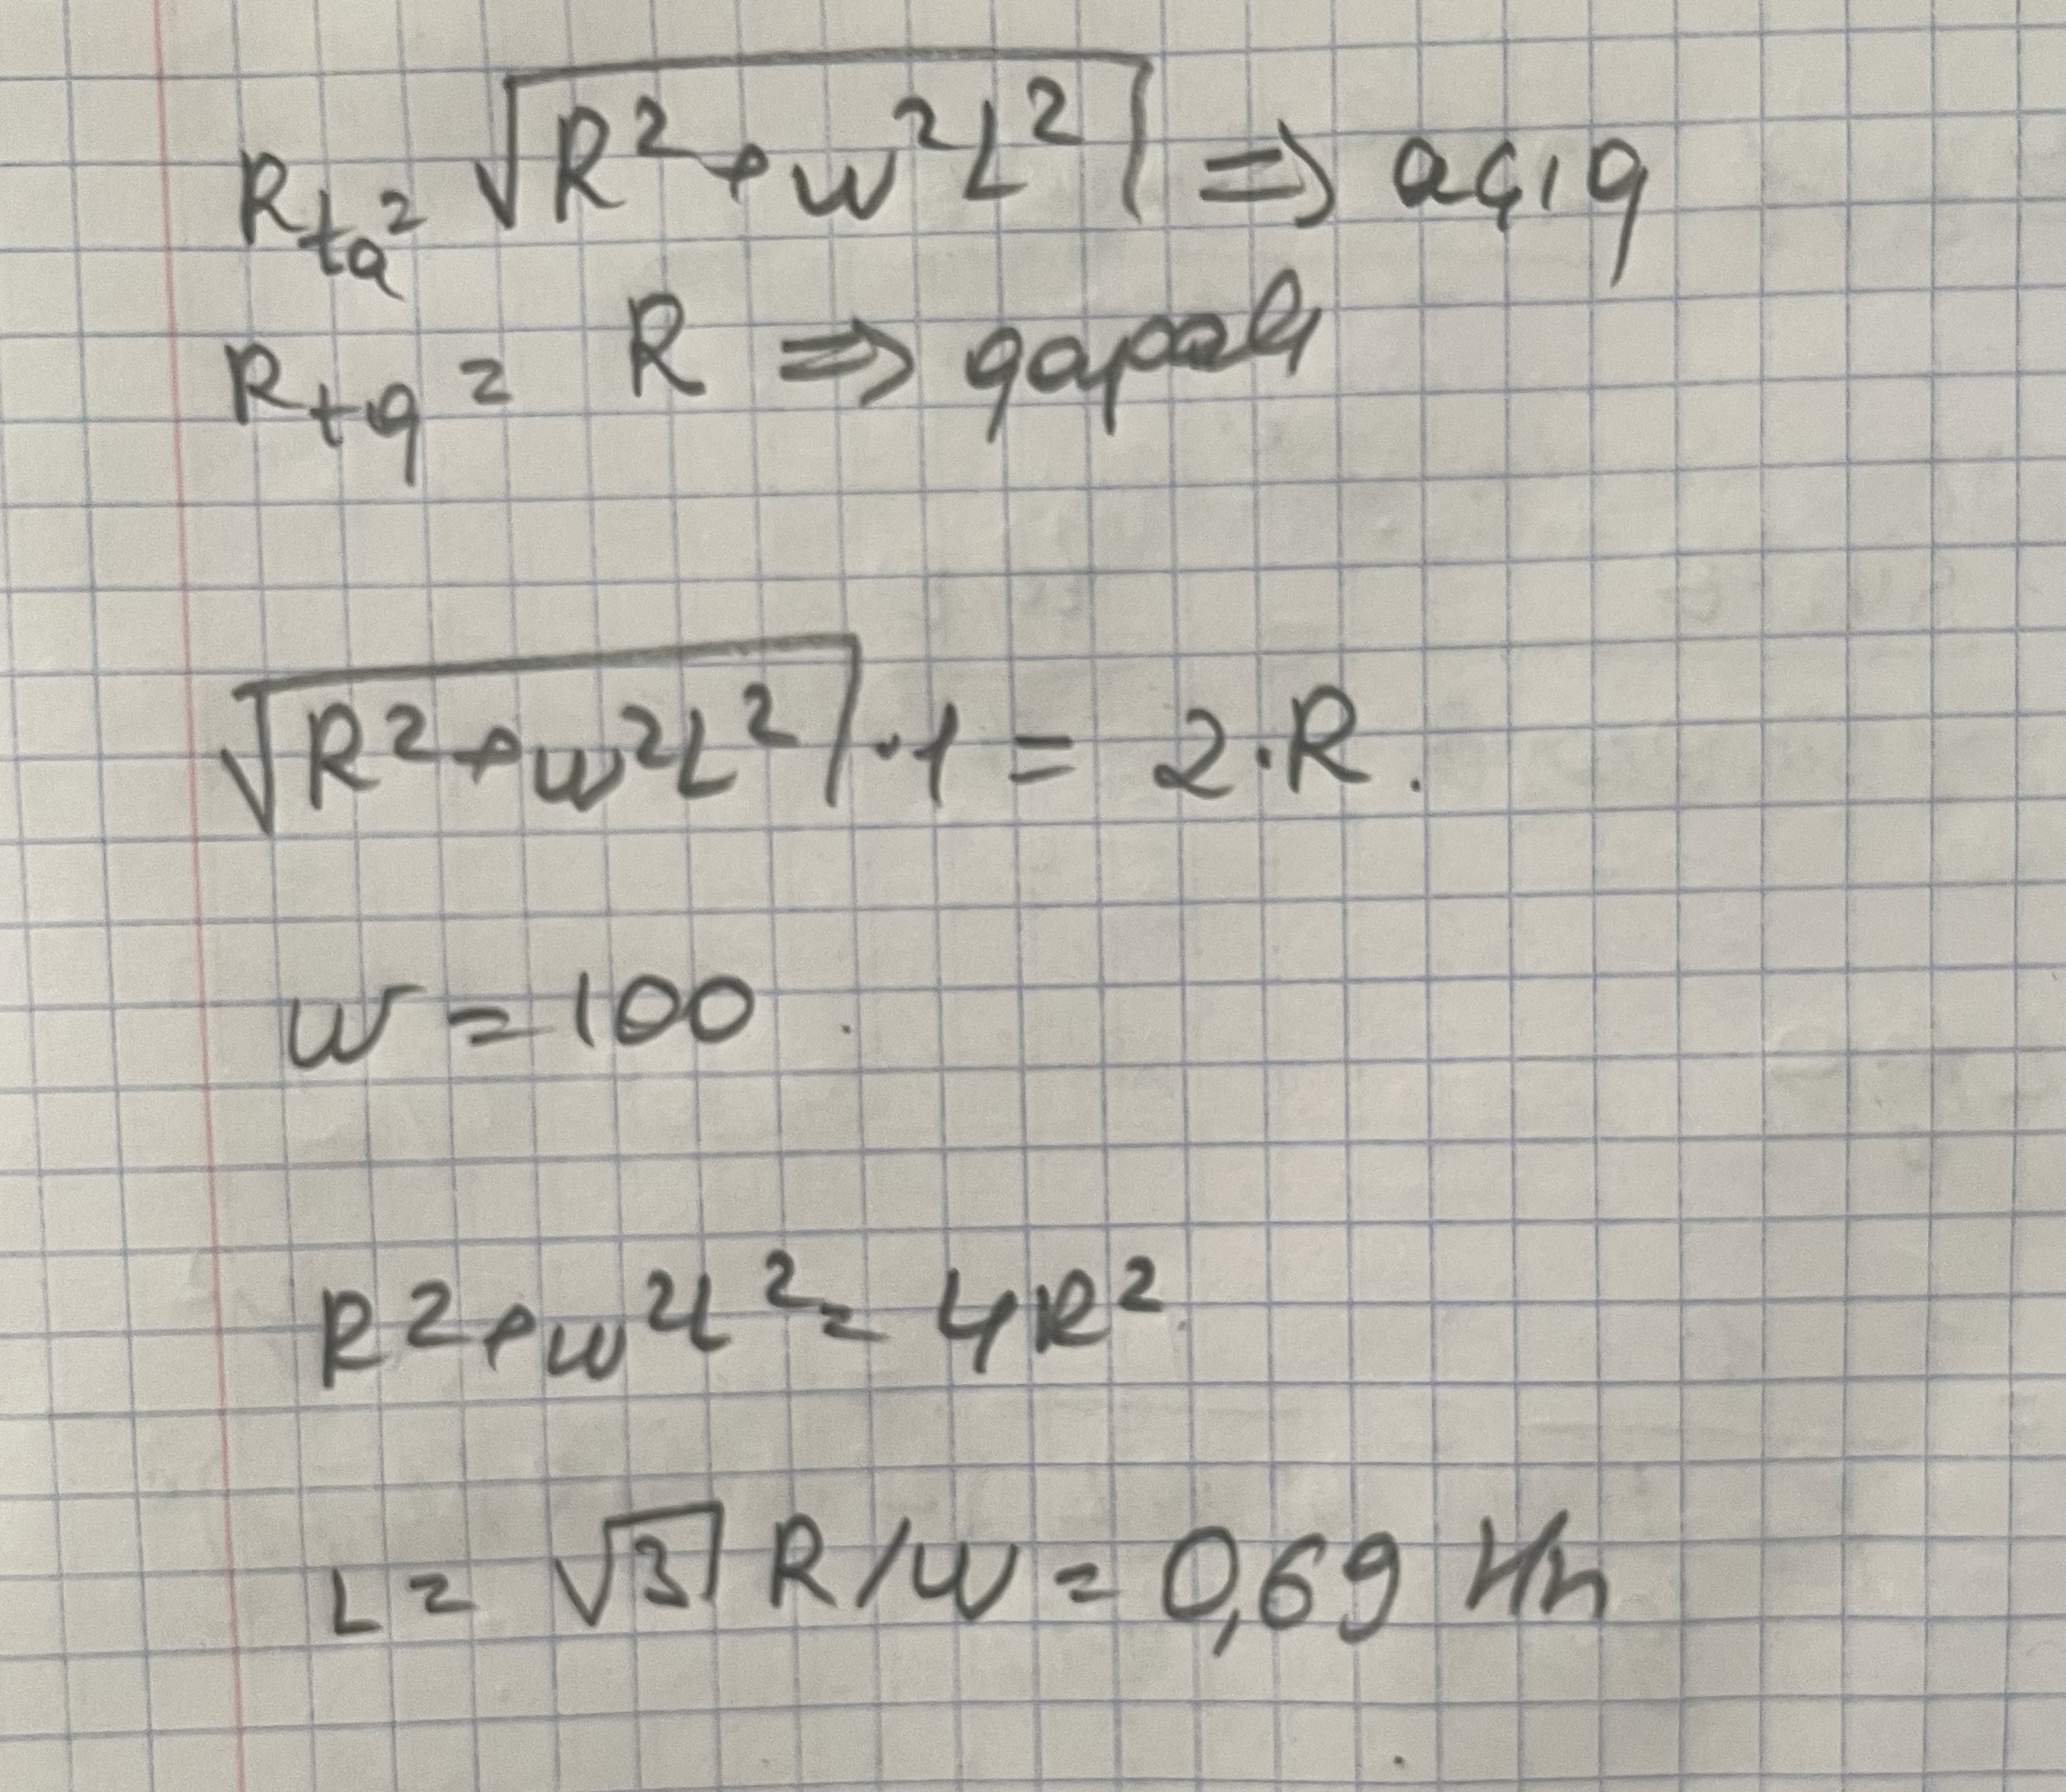 R_ta = √(R² + w²L²) ⇒ açıq
R_tq = R ⇒ qapalı
√(R² + w²L²) · 1 = 2 · R.
w = 100
R² + w²L² = 4R²
L = √3 R/w = 0,69 Hn